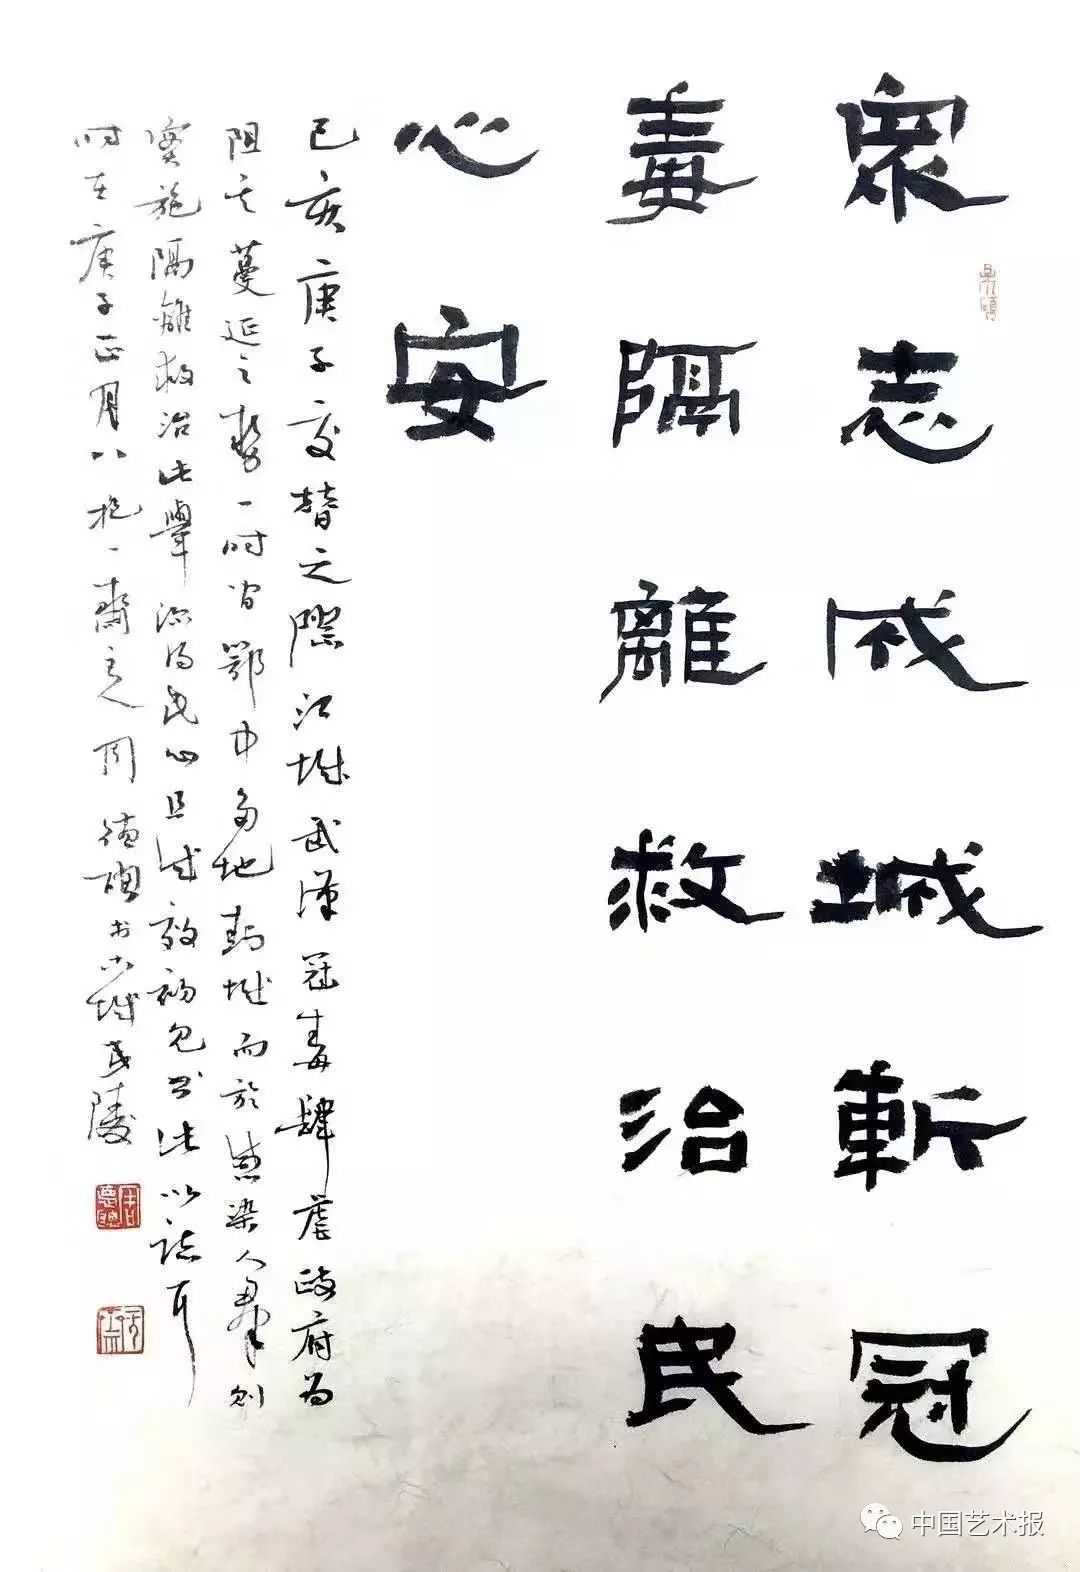 眾志成城斬冠
毒隔離救治民
心安
己亥庚子交替之際江城武漢冠毒肆虐政府為
阻其蔓延之勢一時間鄂中多地封城而於感染人群則
實施隔離救治此舉深得民心且成效初見書此以誌耳
時在庚子正月八抱一齋主人周德聰於小城夷陵
中国艺术报